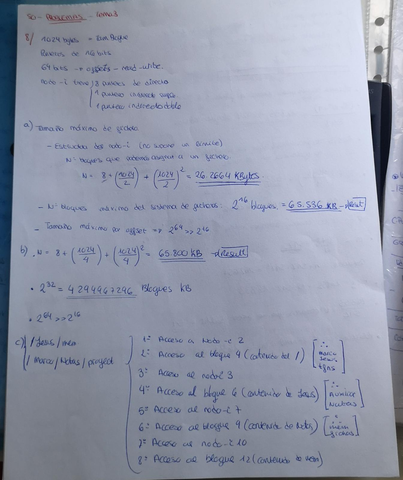 SO - PROBLEMAS - tema 3
8/ 1024 bytes = 1 un Bloque
64 bits → offsets - read-write
nodo-i tiene 8 punteros de directo
1 puntero indirecto
1 puntero indirecto doble
a) Tamaño máximo de fichero
- Estructura del nodo-i
Nº bloques que podemos asignar a un fichero
N = 8 + (1024/2) + (1024/2)^2 = 26.2664 KBytes
- Nº bloques máximo del sistema de ficheros: 2^16 bloques = 65.536 KB → Result
- Tamaño máximo por offset => 2^64 >> 2^16
b) . N = 8 + (1024/4) + (1024/4)^2 = 65.800 KB → Result
• 2^32 = 4.294967296 Bloques KB
• 2^64 >> 2^16
c) / Jesus / mem
/ Marco / Notas / proyect
1º Acceso a Nodo-i 2
2º Acceso al bloque 9 (contenido del /)
3º Acceso al nodo-i 3
4º Acceso al bloque 6 (contenido de Jesus)
5º Acceso al nodo-i 7
6º Acceso al bloque 9 (contenido de Notas)
7º Acceso al nodo-i 10
8º Acceso al bloque 12 (contenido de mem)